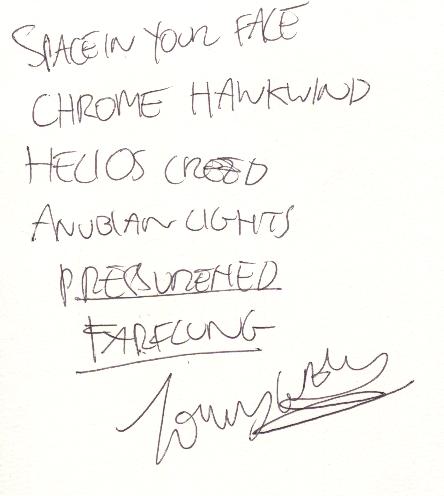 SPACE IN YOUR FACE
CHROME HAWKWIND
HELIOS CREED
ANUBIAN LIGHTS
PRESSUREHED
FARFLUNG